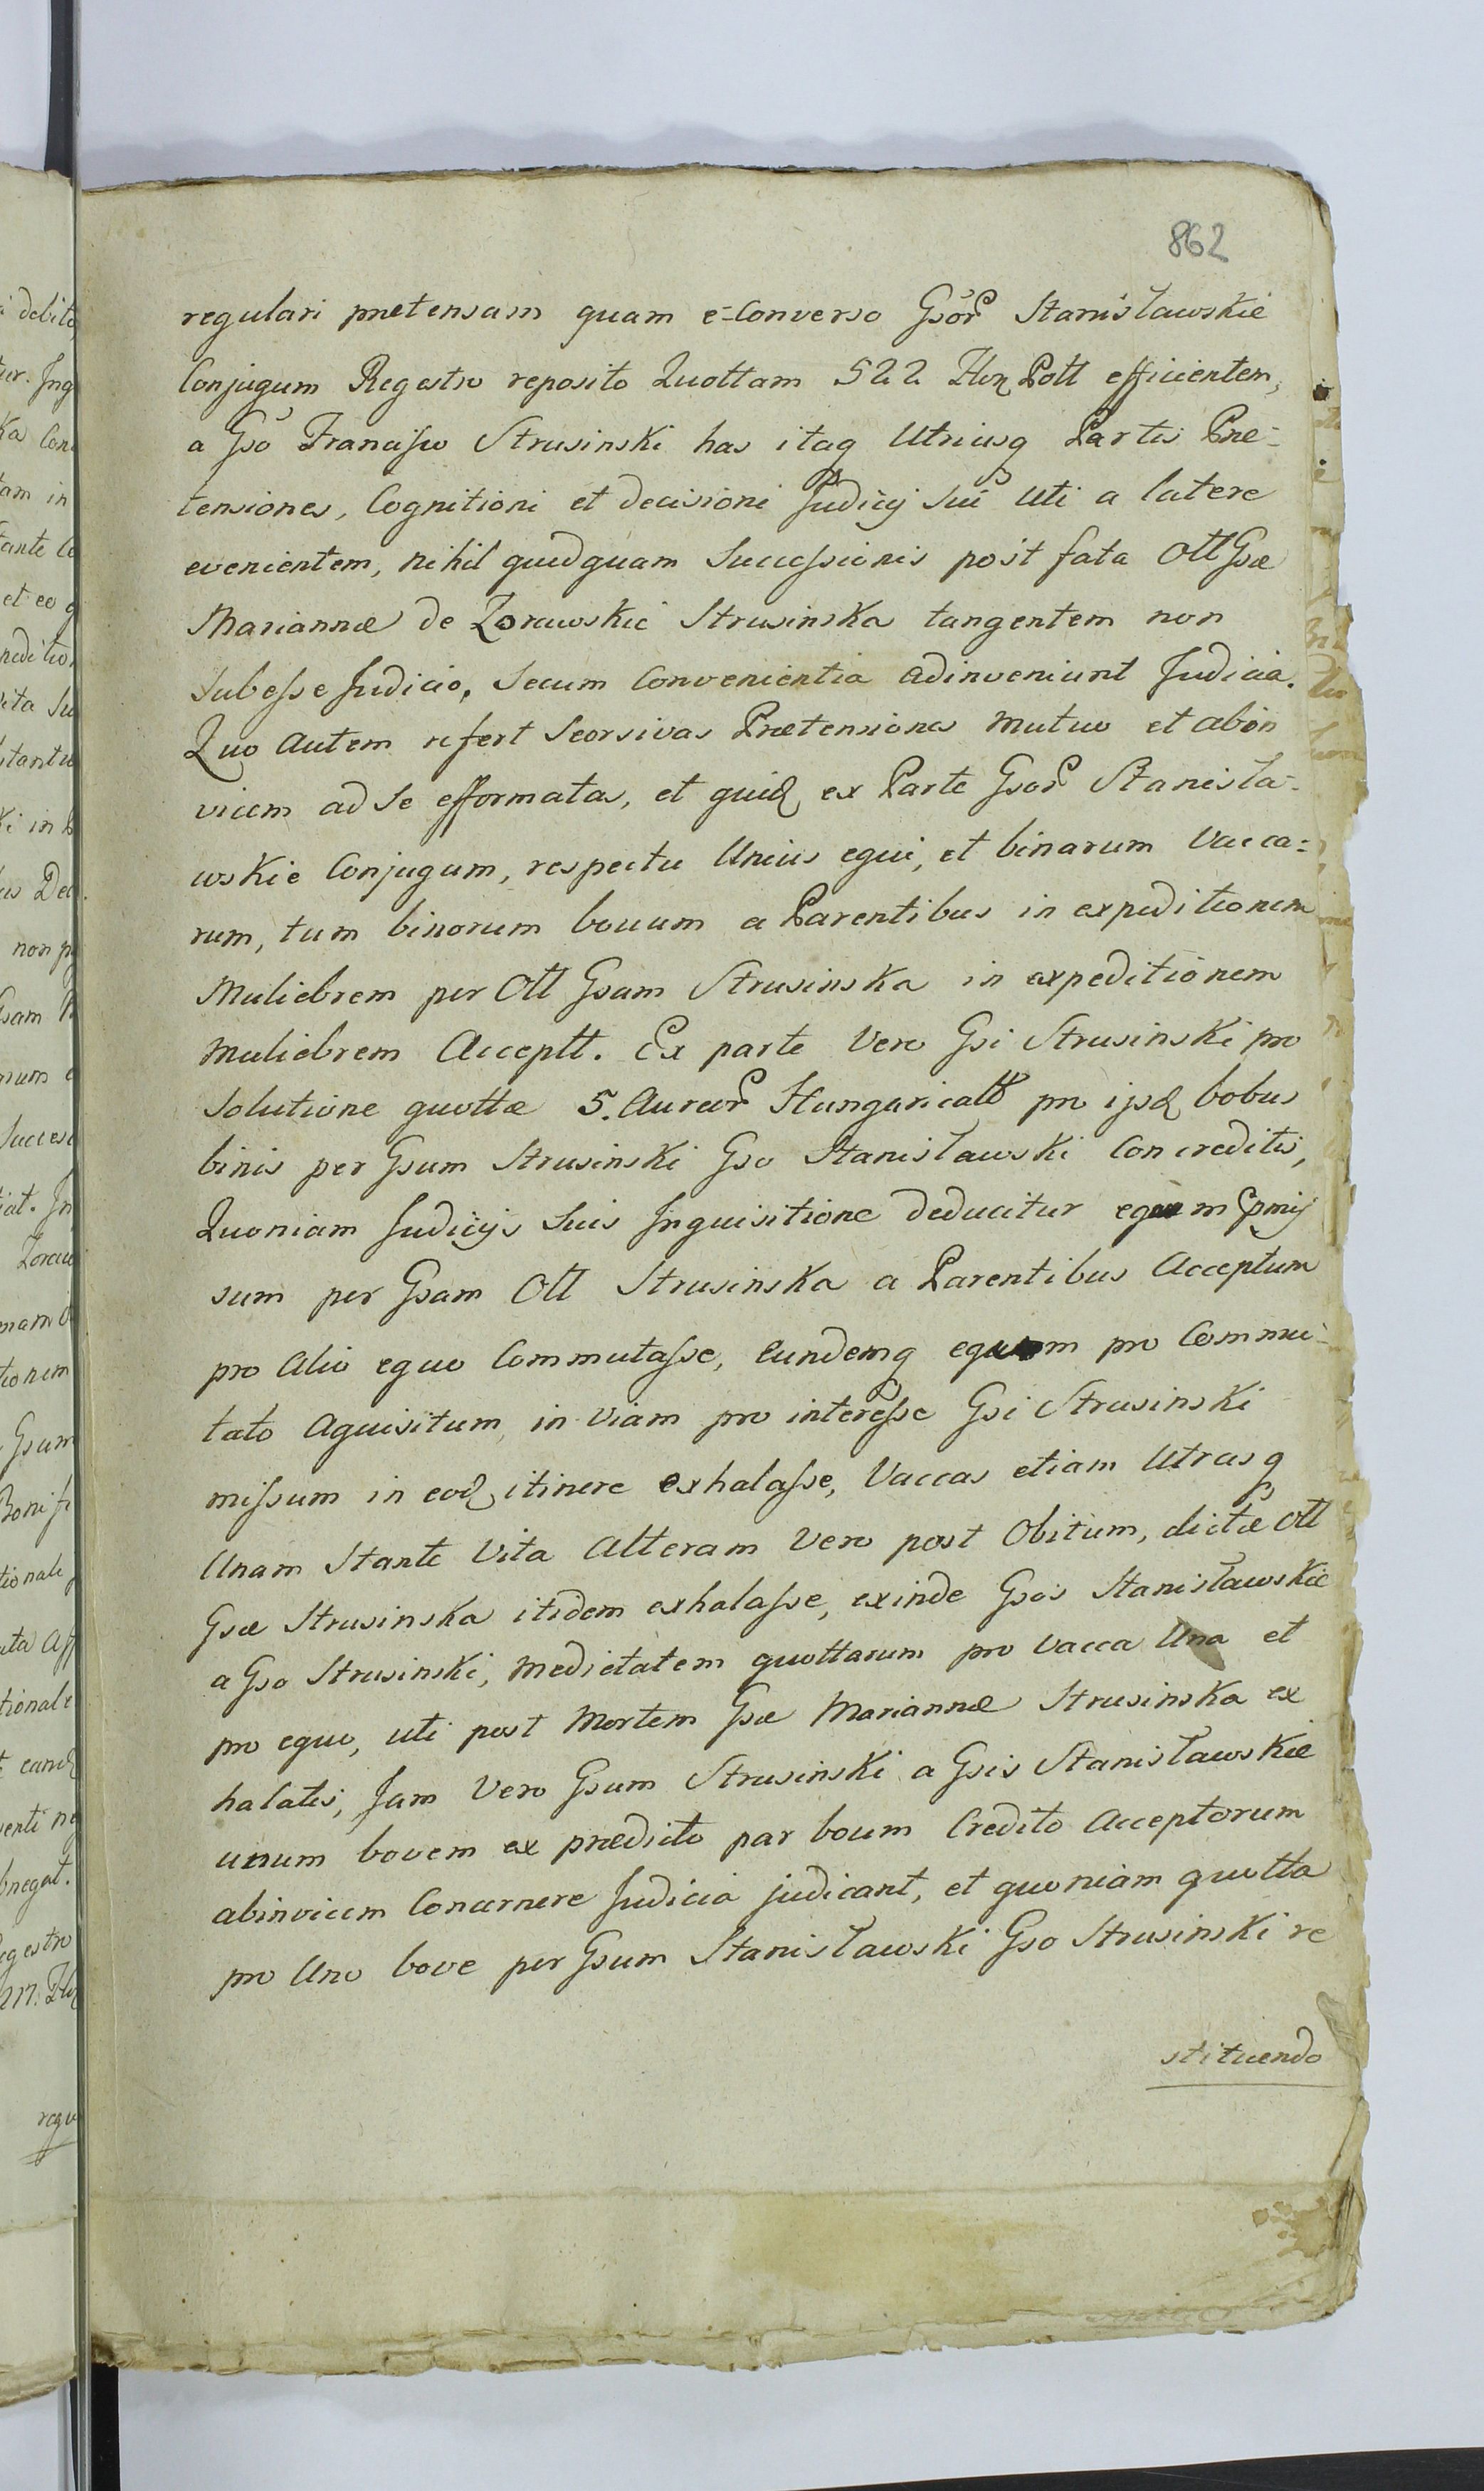 862
regulari prætensam quam e=Converso Gsor Stanisławskie
Conjugum Regestro reposito Quottam 522 Flor Poll efficientem,
a Gso Francisco Strusinski has itaq Utriusq Partis Præ=
tensiones, Cognitioni et decisioni Judicij sui uti a latere
evenientem, nihil quidquam Successionis post fata Oll Gsæ
Mariannæ de Zorawskie Strusinska tangentem non
Subesse Judicio, Secum Convenientia adinveniunt Judicia.
Quo autem refert Seorsivas Prætensiones Mutuo et abin
vicem ad Se efformatas, et quid ex Parte Gsor Stanisła=
wskie Conjugum, respectu Unius equi, et binarum Vacca=
rum, tum binorum bouum a Parentibus in expeditionem
Muliebrem per Oll Gsam Strusinska in expeditionem
Muliebrem Acceptt. Ex parte Vero Gsi Strusinski pro
Solutione quottæ 5. Aureor Hungaricall pro ipsd bobus
binis per Gsum Strusinski Gso Stanisławski Concreditis,
Quoniam Judicijs Suis Inquisitione deducitur equm
sum per Gsam Oll Strusinska a Parentibus Acceptum
pro Alio equo Commutasse, Eundemq equm pro Commu=
tato Aquisitum, in Viam pro interesse Gsi Strusinski
missum in eod itinere exhalasse, Vaccas etiam Utrasq
Unam Stante Vita Alteram Vero post Obitum, dictæ Oll
Gsæ Strusinska itidem exhalasse, exinde Gsis Stanisławskie
a Gso Strusinski, Medietatem quottarum pro Vacca Una et
pro equo, uti post Mortem Gsæ Mariannæ Strusinska ex
halatis, Jam Vero Gsum Strusinski a Gsis Stanisławskie
unum bovem ex prædicto par boum Credito Acceptorum
abinvicem Concernere Judicia judicant, et quoniam quotta
pro Uno bove per Gsum Stanisławski Gso Strusinski re
stituendo